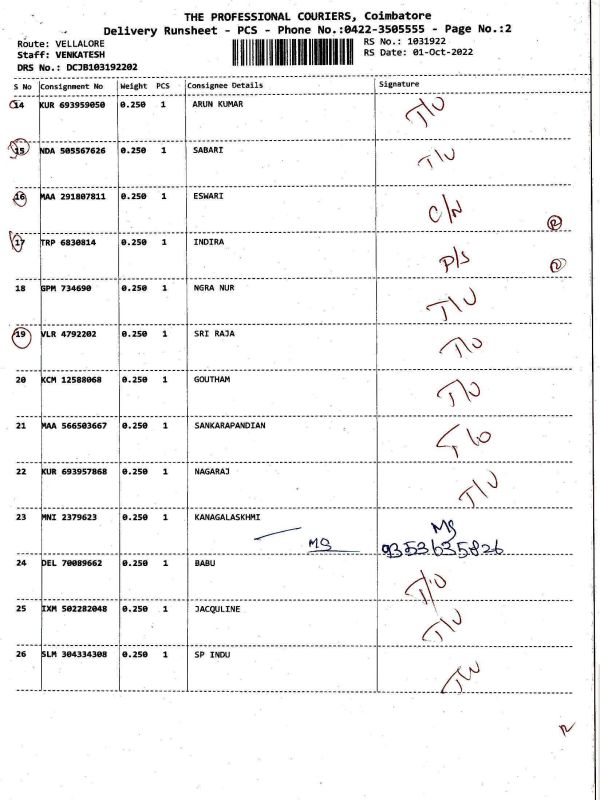 THE PROFESSIONAL COURIERS, Coimbatore
Delivery Runsheet - PCS - Phone No.:0422-3505555 - Page No.:2
Route: VELLALORE RS No.: 1031922
Staff: VENKATESH RS Date: 01-Oct-2022
DRS No.: DCJB103192202
S No Consignment No Weight PCS Consignee Details Signature
14 KUR 693959050 0.250 1 ARUN KUMAR T/U
15 NDA 505567626 0.250 1 SABARI T/U
16 MAA 291807811 0.250 1 ESWARI C/N
17 TRP 6830814 0.250 1 INDIRA P/S
18 GPM 734690 0.250 1 NGRA NUR T/U
19 VLR 4792202 0.250 1 SRI RAJA T/U
20 KCM 12588068 0.250 1 GOUTHAM T/U
21 MAA 566503667 0.250 1 SANKARAPANDIAN
22 KUR 693957868 0.250 1 NAGARAJ T/U
23 MNI 2379623 0.250 1 KANAGALASKHMI MS
MS 9353635826
24 DEL 70089662 0.250 1 BABU T/U
25 IXM 502282048 0.250 1 JACQULINE T/U
26 SLM 304334308 0.250 1 SP INDU T/U